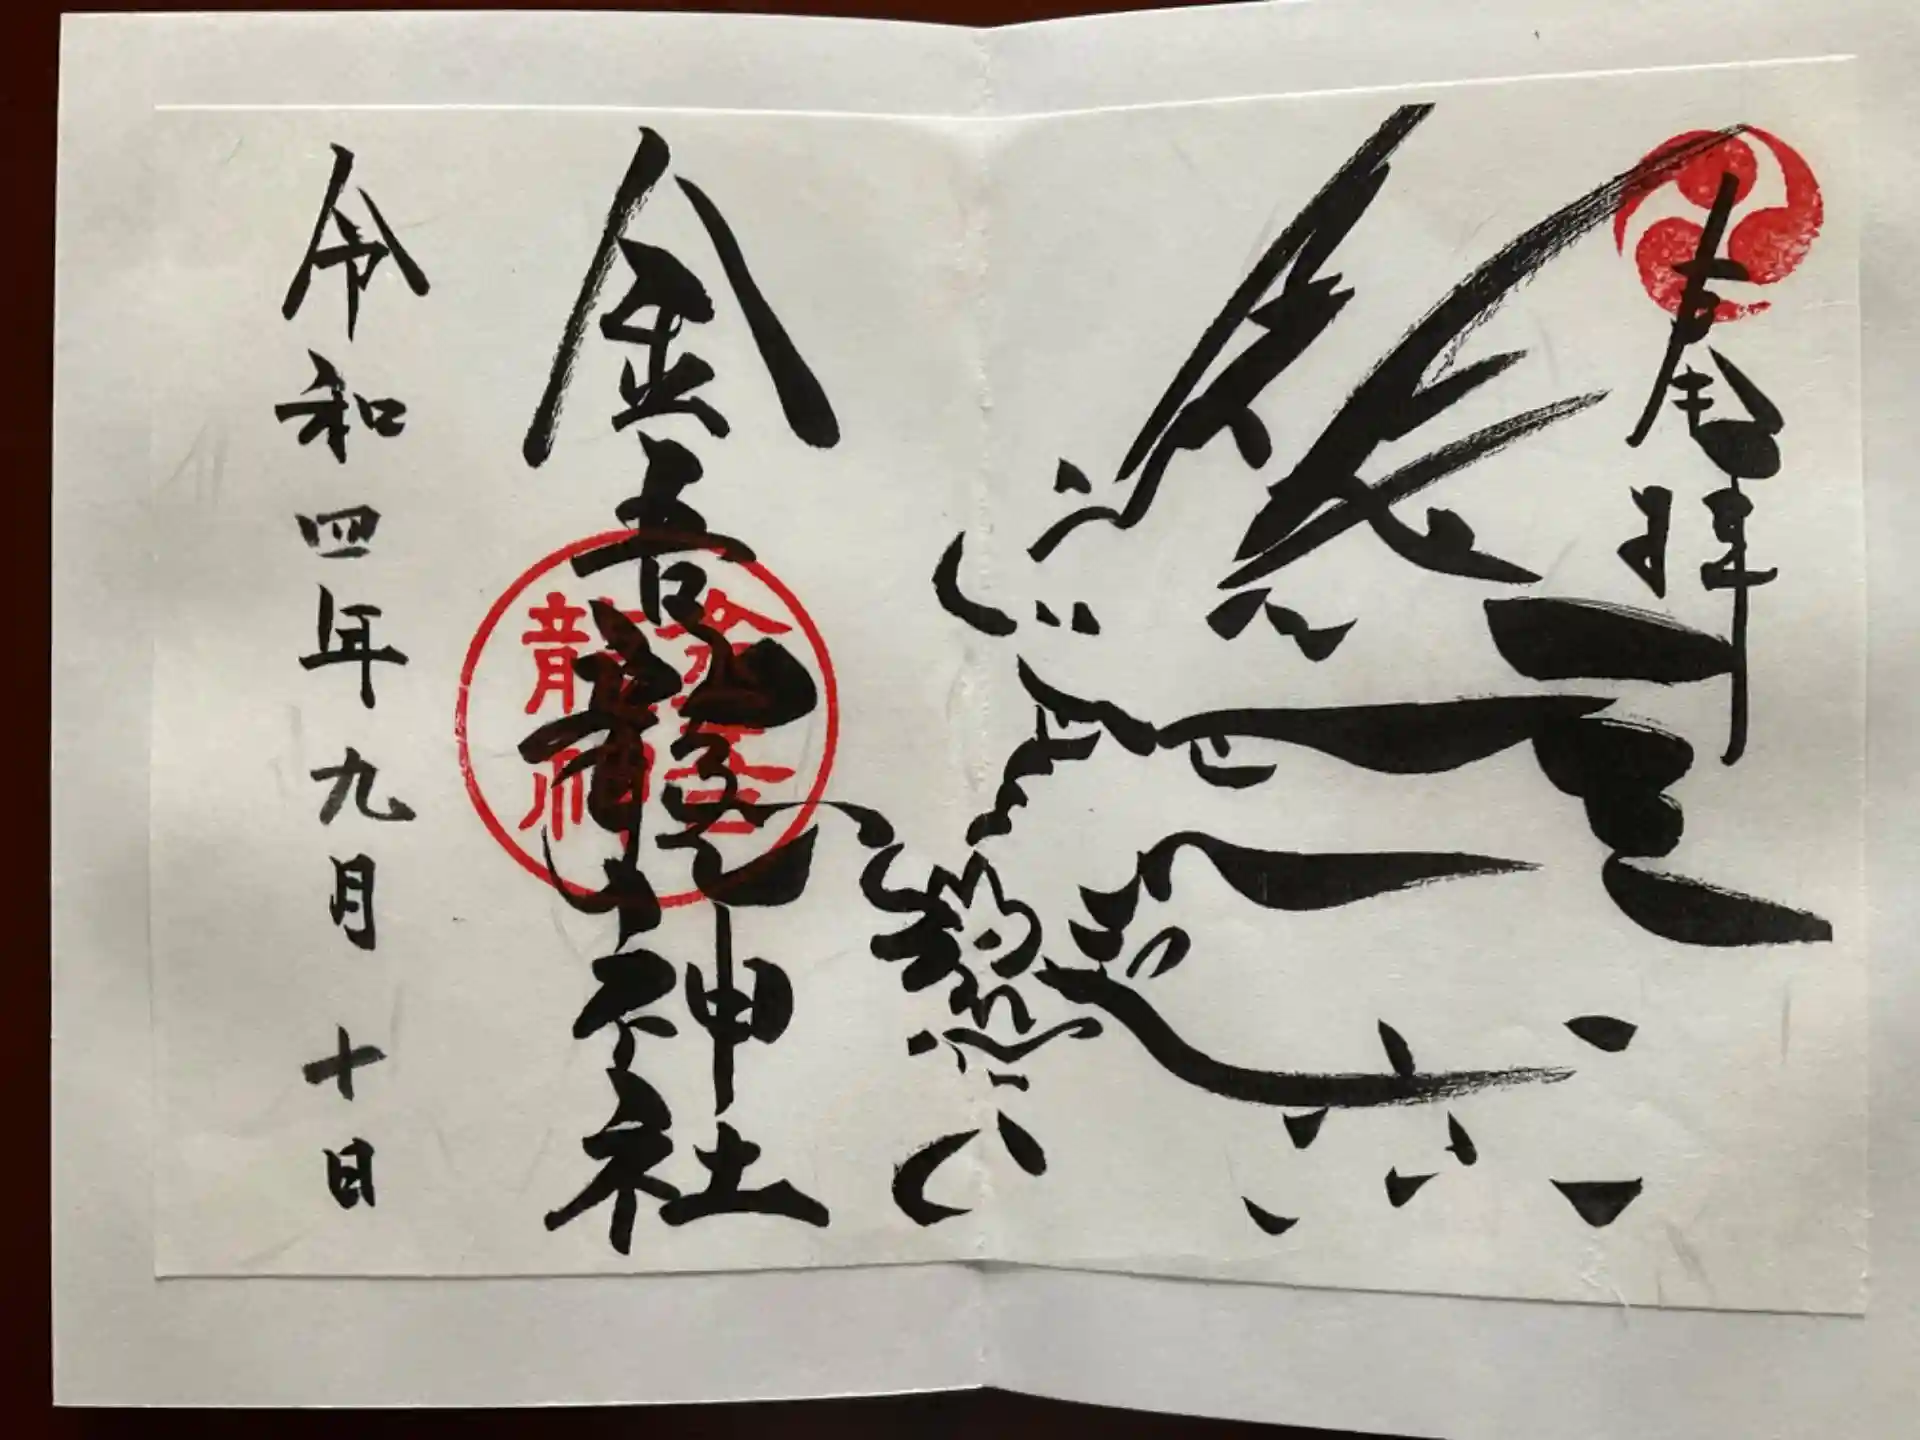 奉拝
金吾龍神社
金吾
龍神
令和四年九月十日